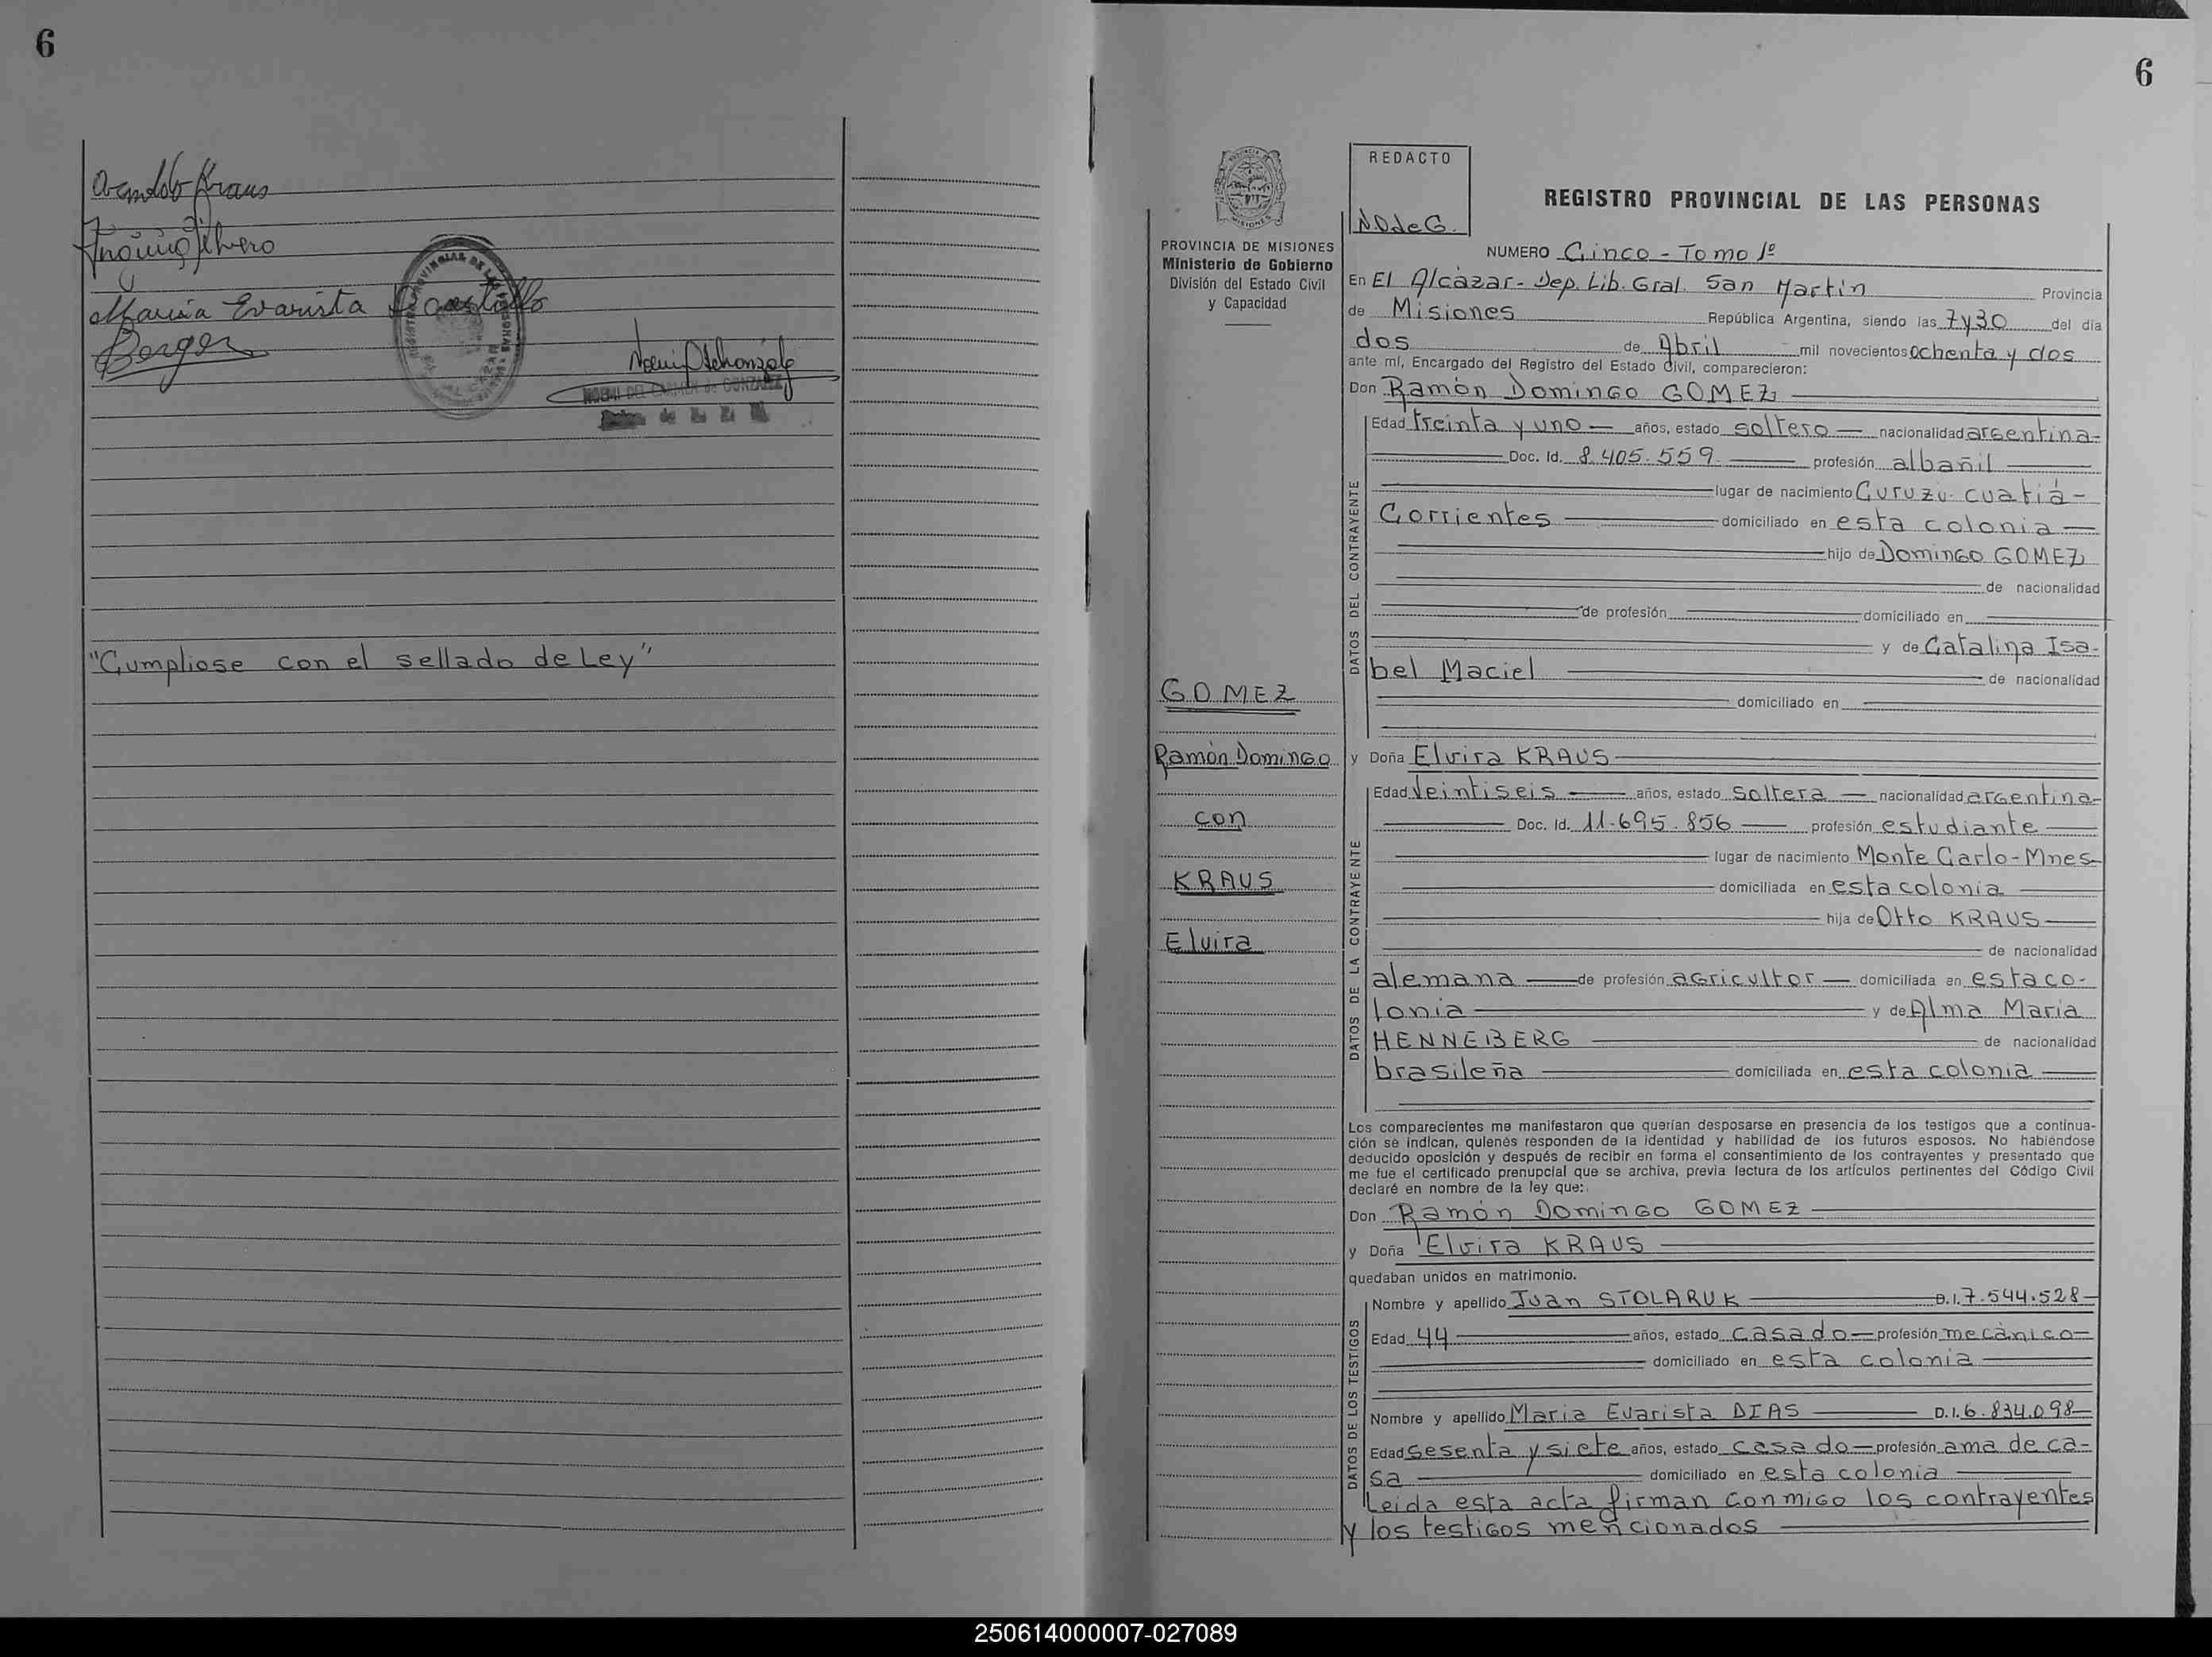 6
Arnoldo Kraus
Maria Evarista D castillo
Berger
NOEMI DEL CARMEN de GONZALEZ
"Cumpliose con el sellado de Ley"
6
PROVINCIA DE MISIONES
Ministerio de Gobierno
División del Estado Civil
y Capacidad
GOMEZ
Ramón Domingo
con
KRAUS
Elvira
REDACTO
N.D de G.
REGISTRO PROVINCIAL DE LAS PERSONAS
NUMERO Cinco - Tomo 1º
En El Alcázar - Dep. Lib. Gral. San Martin Provincia
de Misiones República Argentina, siendo las 7y30 del día
dos de Abril mil novecientos ochenta y dos
ante mí, Encargado del Registro del Estado Civil, comparecieron:
Don Ramón Domingo GOMEZ
DATOS DEL CONTRAYENTE
Edad treinta y uno años, estado soltero nacionalidad argentina
Doc. Id. 8.405.559 profesión albañil
lugar de nacimiento Curuzu cuatiá -
Corrientes domiciliado en esta colonia
hijo de Domingo GOMEZ
de nacionalidad
de profesión domiciliado en
y de Catalina Isa-
bel Maciel de nacionalidad
domiciliado en
y Doña Elvira KRAUS
DATOS DE LA CONTRAYENTE
Edad Veintiseis años, estado soltera nacionalidad argentina
Doc. Id. 11.695.856 profesión estudiante
lugar de nacimiento Monte Carlo - Mnes
domiciliada en esta colonia
hija de Otto KRAUS
de nacionalidad
alemana de profesión agricultor domiciliada en esta co-
lonia y de Alma Maria
HENNEBERG de nacionalidad
brasileña domiciliada en esta colonia
Los comparecientes me manifestaron que querían desposarse en presencia de los testigos que a continua-
ción se indican, quienes responden de la identidad y habilidad de los futuros esposos. No habiéndose
deducido oposición y después de recibir en forma el consentimiento de los contrayentes y presentado que
me fue el certificado prenupcial que se archiva, previa lectura de los artículos pertinentes del Código Civil
declaré en nombre de la ley que:
Don Ramón Domingo GOMEZ
y Doña Elvira KRAUS
quedaban unidos en matrimonio.
DATOS DE LOS TESTIGOS
Nombre y apellido Juan STOLARUK D.I. 7.544.528
Edad 44 años, estado casado profesión mecánico
domiciliado en esta colonia
Nombre y apellido Maria Evarista DIAS D.I. 6.834.098
Edad sesenta y siete años, estado casado profesión ama de ca-
sa domiciliado en esta colonia
Leida esta acta firman conmigo los contrayentes
y los testigos mencionados
250614000007-027089